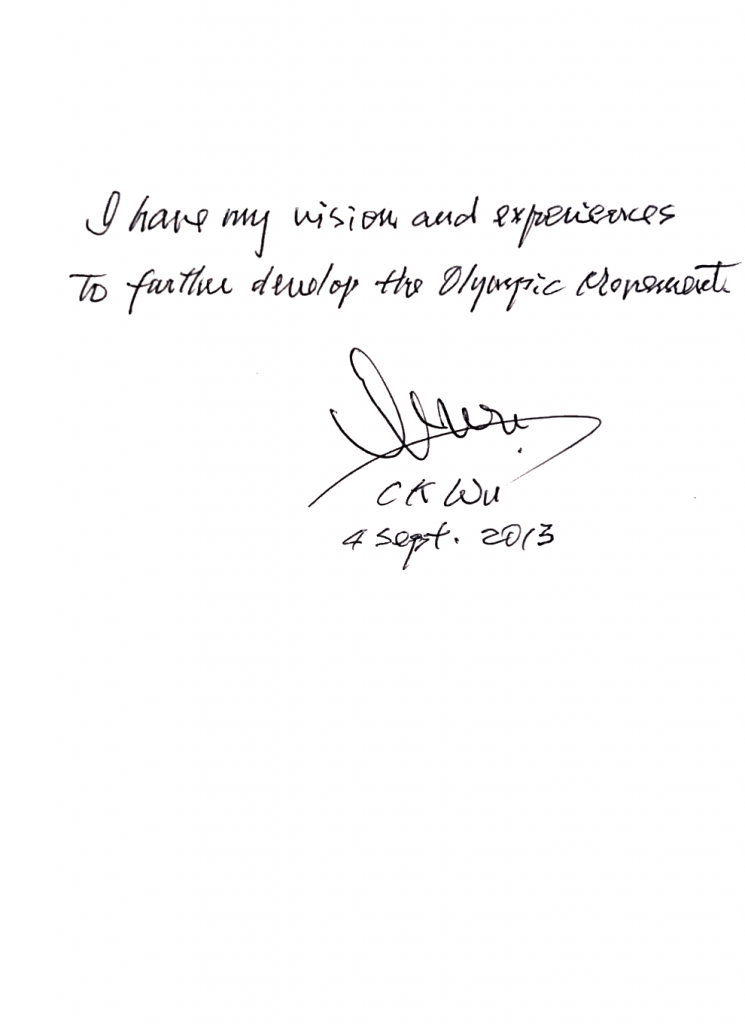 I have my vision and experiences
To further develop the Olympic Movement
CK Wu
4 Sept. 2013